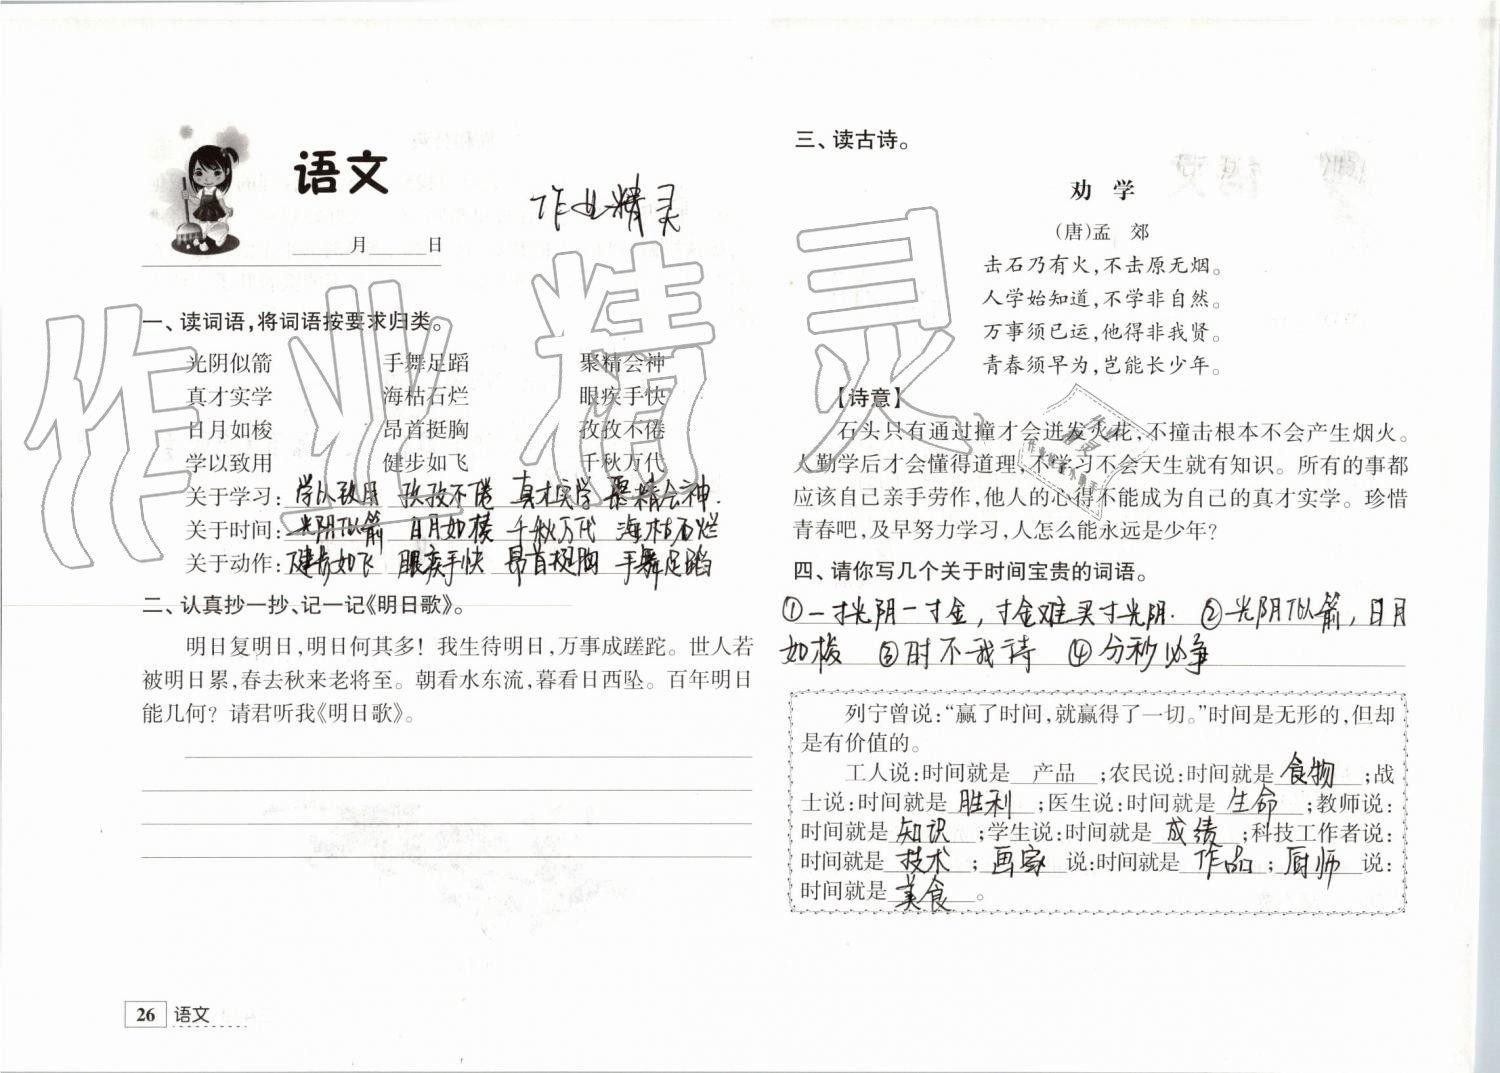 语文
作业精灵
月 日
一、读词语,将词语按要求归类。
光阴似箭 手舞足蹈 聚精会神
真才实学 海枯石烂 眼疾手快
日月如梭 昂首挺胸 孜孜不倦
学以致用 健步如飞 千秋万代
关于学习:学以致用 孜孜不倦 真才实学 聚精会神.
关于时间:光阴似箭 日月如梭 千秋万代 海枯石烂
关于动作:健步如飞 眼疾手快 昂首挺胸 手舞足蹈
二、认真抄一抄、记一记《明日歌》。
明日复明日,明日何其多!我生待明日,万事成蹉跎。世人若
被明日累,春去秋来老将至。朝看水东流,暮看日西坠。百年明日
能几何?请君听我《明日歌》。
26 语文
三、读古诗。
劝 学
(唐)孟 郊
击石乃有火,不击原无烟。
人学始知道,不学非自然。
万事须已运,他得非我贤。
青春须早为,岂能长少年。
【诗意】
石头只有通过撞才会迸发火花,不撞击根本不会产生烟火。
人勤学后才会懂得道理,不学习不会天生就有知识。所有的事都
应该自己亲手劳作,他人的心得不能成为自己的真才实学。珍惜
青春吧,及早努力学习,人怎么能永远是少年?
四、请你写几个关于时间宝贵的词语。
①一寸光阴一寸金,寸金难买寸光阴. ②光阴似箭,日月
如梭 ③时不我待 ④分秒必争
列宁曾说:“赢了时间,就赢得了一切。”时间是无形的,但却
是有价值的。
工人说:时间就是 产品 ;农民说:时间就是 食物 ;战
士说:时间就是 胜利 ;医生说:时间就是 生命 ;教师说:
时间就是 知识 ;学生说:时间就是 成绩 ;科技工作者说:
时间就是 技术 ; 画家 说:时间就是 作品 ; 厨师 说:
时间就是 美食 。
作业精灵